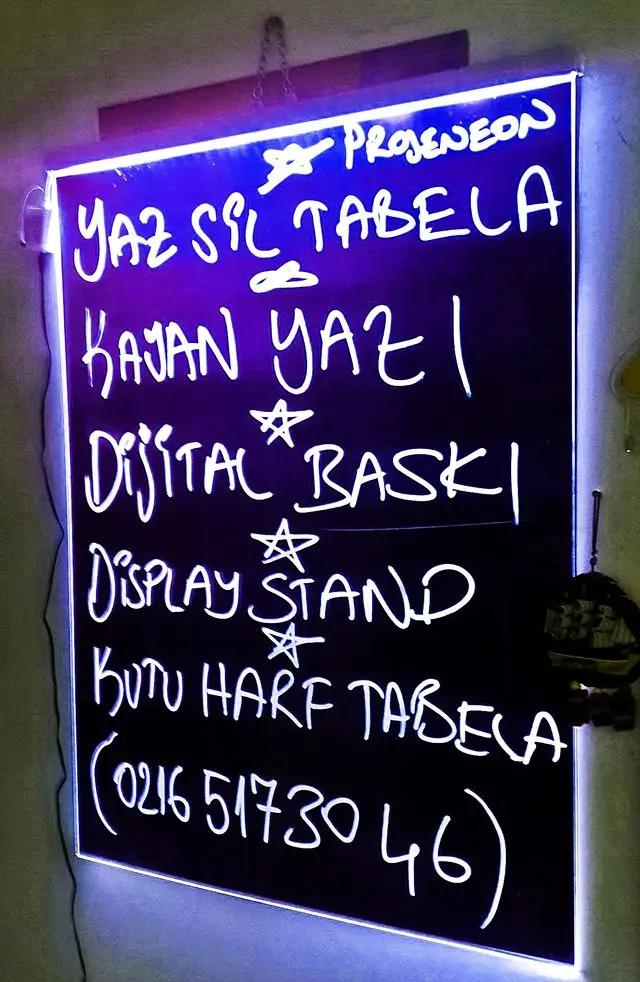 PROJENEON
YAZ SİL TABELA
KAYAN YAZI
DİJİTAL BASKI
DİSPLAY STAND
KUTU HARF TABELA
(0216 517 30 46)